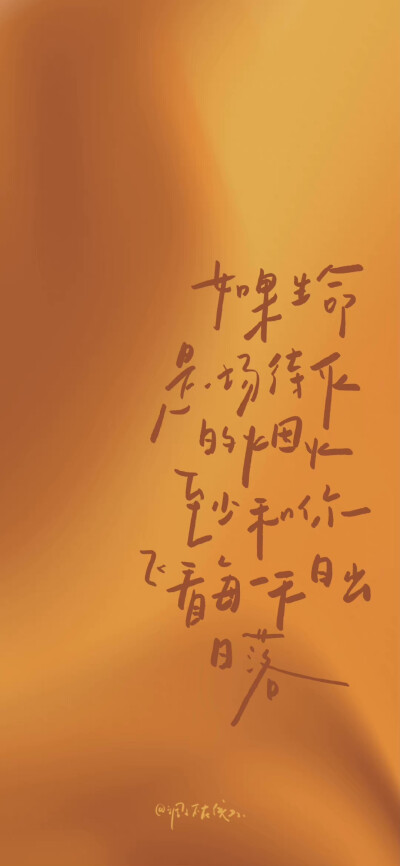 如果生命
是场待灭
的烟火
至少和你一
起看每一天日出
日落